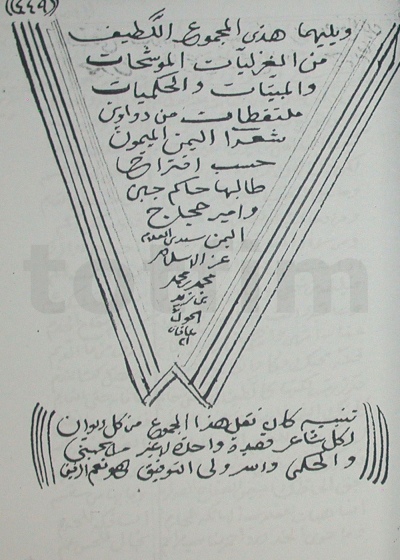 ((٤٤٩))
ويليهما هذى المجموع اللطيف
من الغزليات الموشحات
والمبيتات والحكميات
ملتقطات من دواوين
شعرا اليمن الميمون
حسب اقتراح
طالبها حاكم جبى
وامير حجاج
اليمن سيدى العلامه
عز الاسلام
محمد محمد
بن زيد
الحوثى
totfim
تنبيه كان نقل هذا المجموع من كل ديوان
لكل شاعر قصيدة واحدة لا غير من
والحكمى والله ولى التوفيق فهو نعم الرفيق